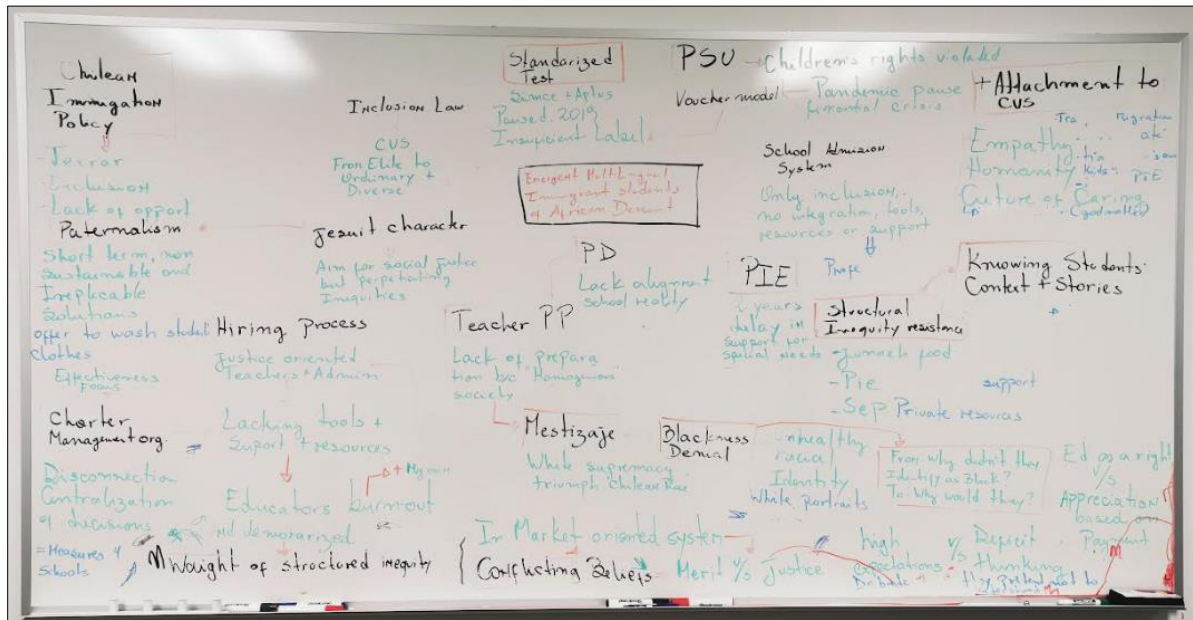 Chilean
Immigation
Policy
- Terror
- Exclusion
- Lack of opport
Paternalism
Short term, non
Sustainable and
Ireplicable
Solutions
offer to wash student
clothes
Effectiveness
Focus
Charter
Management org.
Disconnection
Centralization
of decisions
= Measures 4
Schools
Inclusion Law
CUS
From Elite to
Ordinary +
Diverse
Jesuit character
Aim for social justice
but perpetuating
Inequities
Hiring Process
Justice oriented
Teachers + Admin
Lacking tools +
Suport + resources
Educators burnout
demoralized
Waight of structured inequity
Standarized
Test
Simce + Aptus
Paused. 2019
Insuficient Label
Emergent Multilingual
Immigrant students
of African Descent
PD
Lack alignment
School reality
Teacher PP
Lack of prepara
tion b/c "Homogenious"
society
Mestizaje
White supremacy
triumph Chilean Rae
In Market oriented system
{ Conflicting Beliefs
Merit v/s Justice
PSU → Children's rights violated
Voucher model
Pandemic pause
finantial crisis
School Admission
System
Only inclusion..
no integration, tools,
resources or support
Profe
PIE
2 years
delay in
support for
special needs
Structural
Inequity resistance
- Junaeb food
- Pie
support
- Sep Private resources
Blackness
Denial
Unhealthy
racial
Identity
White portraits
From why didn't they
Identify as Black?
To: Why would they?
high
expectations
v/s Deficit
thinking
they pretend not to
+ Attachment to
CUS
Empathy
Homanity
Culture of Caring
Migration
Kids
PIE
(godmother)
Knowing Students'
Context + Stories
Ed as a right
v/s
Appreciation
based on
Payment